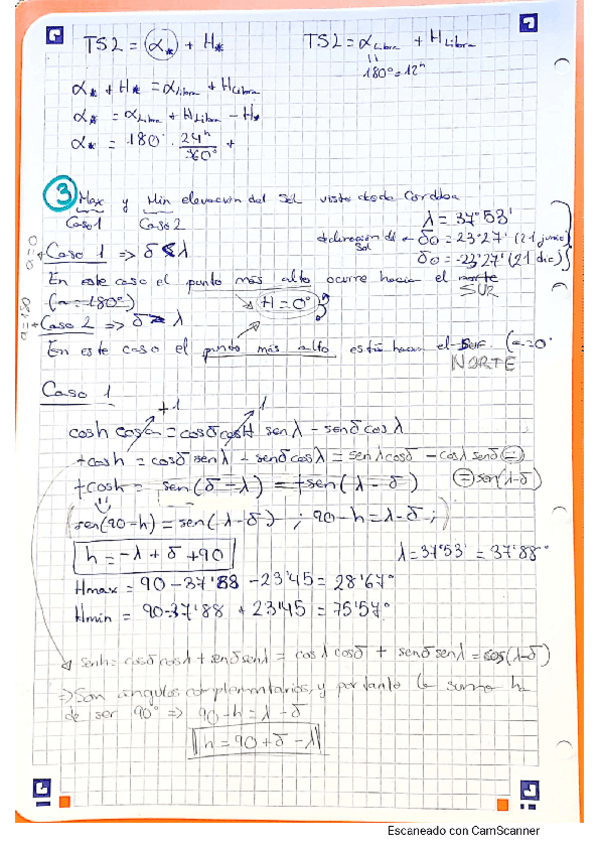 TSL = α* + H*
TSL = αLibra + HLibra
180° = 12h
α* + H* = αLibra + HLibra
α* = αLibra + HLibra - H*
α* = 180° · 24h/360° +
3 Max y Min elevación del Sol vista desde Cordoba
Caso 1 Caso 2
λ = 37°53'
declinación del Sol δ⊙ = 23°27' (21 junio)
δ⊙ = -23°27' (21 dic)
a=0
Caso 1 => δ < λ
En este caso el punto más alto ocurre hacia el SUR
(a=180°)
H = 0°
a=180
Caso 2 => δ > λ
En este caso el punto más alto está hacia el (a=0°
NORTE
Caso 1
+1 1
cosh cosa = cosδ cosH senλ - senδ cosλ
+cosh = cosδ senλ - senδ cosλ = senλ cosδ - cosλ senδ =
+cosh = sen(δ-λ) = +sen(λ-δ)
= sen(λ-δ)
sen(90-h) = sen(λ-δ) ; 90-h = λ-δ ;
h = -λ + δ + 90
λ = 37°53' = 37'88°
Hmax = 90 - 37'88 - 23'45 = 28'67°
Hmin = 90 - 37'88 + 23'45 = 75'57°
senh = cosδ cosλ + senδ senλ = cosλ cosδ + senδ senλ = cos(λ-δ)
=> Son ángulos complementarios, y por tanto la suma ha
de ser 90° => 90-h = λ-δ
h = 90 + δ - λ
Escaneado con CamScanner